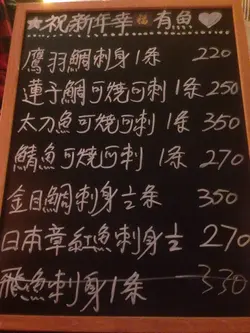 ★祝新年幸福有魚♥
鷹羽鯛刺身1条 220
蓮子鯛可燒可刺1条 250
太刀魚可燒可刺1条 350
鯖魚可燒可刺1条 270
金目鯛刺身½条 350
日本章紅魚刺身½ 270
飛魚刺身1条 330